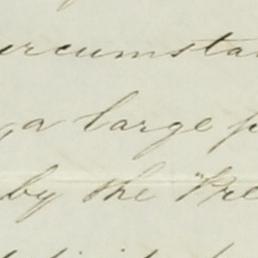 ircumstan
a large p
by the "Pre